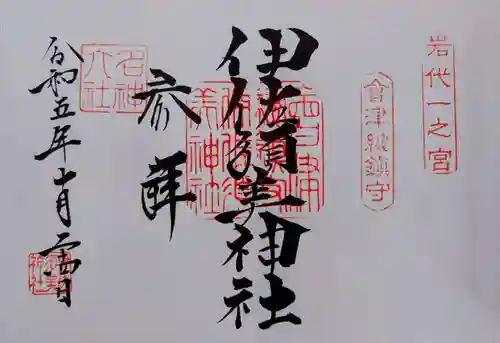 岩代一之宮
會津総鎮守
伊佐須美神社
参拝
名神大社
令和五年十月二四日